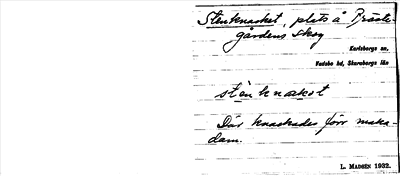 Stenknacket, plats å Präste-
gårdens skog
Karlsborgs sn,
Vadsbo hd, Skaraborgs län
stenknackot
Där knackades förr maka-
dam.
L. MADSEN 1932.